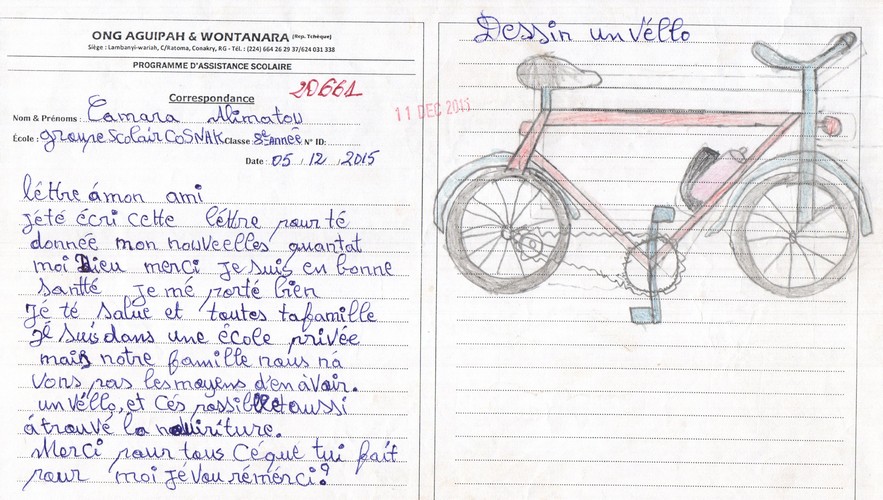 ONG AGUIPAH & WONTANARA (Rep. Tchèque)
Siège : Lambanyi-wariah, C/Ratoma, Conakry, RG - Tél. : (224) 664 26 29 37/624 031 338
PROGRAMME D'ASSISTANCE SCOLAIRE
20661
Correspondance
Nom & Prénoms : Camara Alimatou
École : groupe scolair COSNAK Classe 8e année N° ID:
Date : 05 / 12 / 2015
léttre ámon ami
jété écri cette léttre pour té
donnée mon nouveelles quantat
moi Dieu merci je suis en bonne
santté je mé porté bien
Jé té salue et toutes tafamille
jé suis dans une école privée
mais notre famille nous ná
vons pas les moyens d'en àvoir.
un véllo, et cés possible aussi
átrouvé la nouiriture.
Merci pour tous céque tui fait
pour moi jévou rémérci?
Dessin un véllo
11 DEC 2015